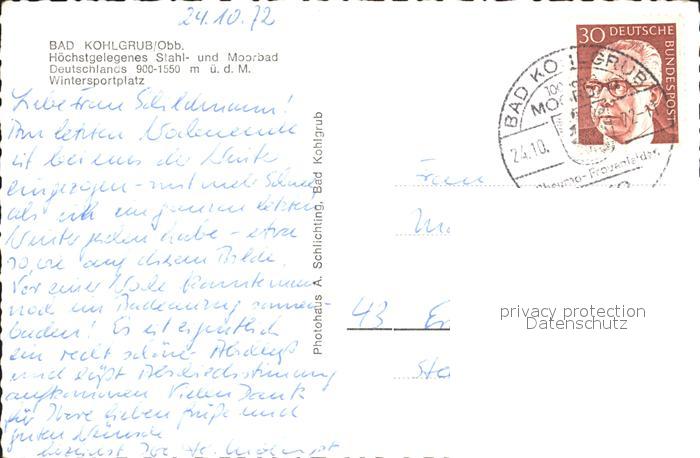 24.10.72
BAD KOHLGRUB/Obb.
Höchstgelegenes Stahl- und Moorbad
Deutschlands 900-1550 m ü. d. M.
Wintersportplatz
Liebe Frau
Am letzten Wochenende
ist bei uns der Winter
eingezogen - mit mehr Schnee
als ich im ganzen letzten
Winter gesehen habe - etwa
so, wie auf diesem Bilde.
Vor einer Woche konnte man
noch im Badeanzug sonnen-
baden! Es ist eigentlich
ein recht schöner
und läßt Abschiedsstimmung
aufkommen. Vielen Dank
für Ihre lieben Grüße und
guten Wünsche
Photohaus A. Schlichting, Bad Kohlgrub
30 DEUTSCHE
BUNDESPOST
BAD KOHLGRUB
24.10.
Rheuma-Frauenleiden
Frau
43
privacy protection
Datenschutz